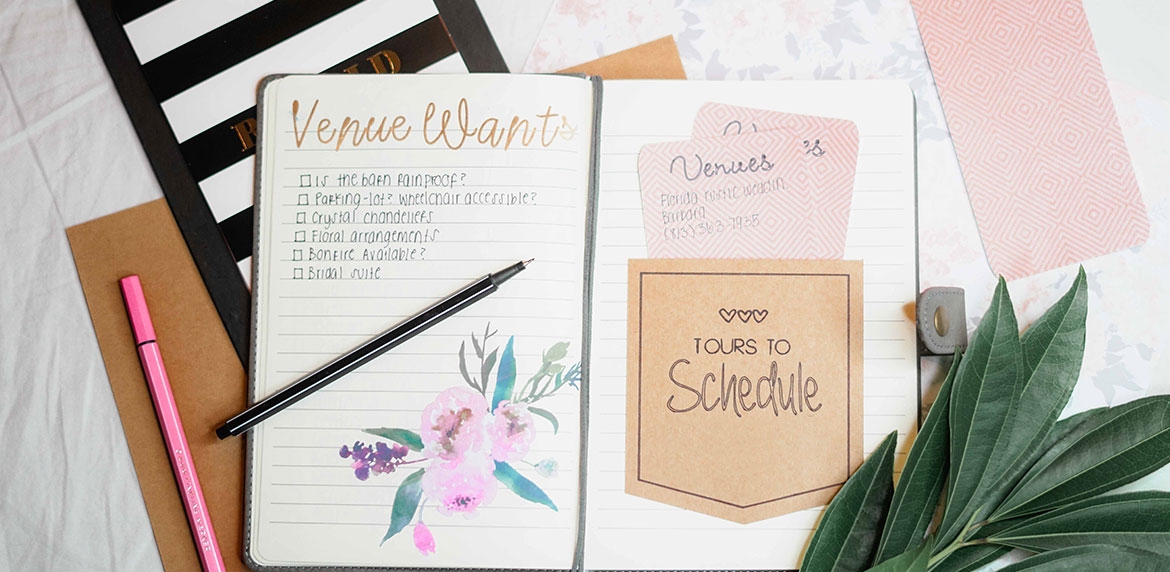 Venue Wants
Is the barn rainproof?
Parking-lot? Wheelchair accessible?
Crystal chandeliers
Floral arrangements
Bonfire Available?
Bridal suite
Venues
's
Florida rustic weddin
Barbara
(813) 363-7935
TOURS TO
Schedule